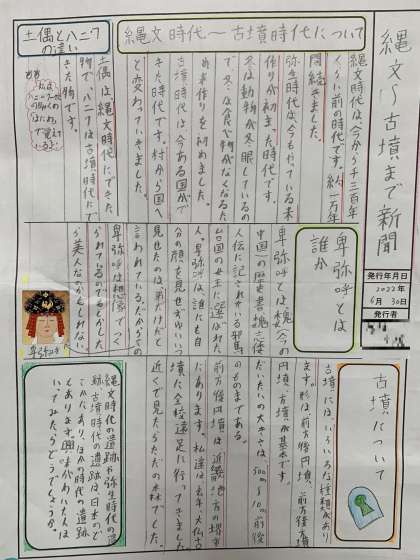 縄文〜古墳まで新聞
発行年月日
2022年
6月30日
発行者
縄文時代〜古墳時代について
縄文時代は今から二千三百年
くらい前の時代です。約一万年
間続きました。
弥生時代は今もやっている米
作りが始まった時代です。
冬は動物が冬眠しているの
で、冬は食べ物がなくなるた
め米作りを初めました。
古墳時代は今ある国がで
きた時代です。村から国へ
と変わっていきました。
土偶とハニワ
の違い
土偶は、縄文時代にできた
物で、ハニワは古墳時代にで
きた物です。
卑弥呼とは
誰か
卑弥呼とは魏(今の
中国)の歴書魏志倭
人伝に記されている邪馬
台国の女王に選ばれた
人。卑弥呼は誰にも自
分の顔を見せず、いつも
見せたのは弟だけだと
言われている。だからこの
卑弥呼は想像でつく
られているのでもしかした
ら美人なのかもしれない。
卑弥呼
古墳について
古墳には、いろいろな種類があり
ます。形は、前方後円墳、前方後方墳
円墳、方墳が基本です。
だいたいの大きさは、500m〜10m前後
のものまである。
前方後円墳は近畿地方の堺市
にあります。私達は去年、大仏古
墳に全校遠足に行ってきました。
近くで見たらただの森でした。
縄文時代の遺跡や弥生時代の遺
跡、古墳時代の遺跡は日本のど
こかにあり、ほかの時代の遺跡
もあります。興味がある人は
いってみたらどうでしょうか。